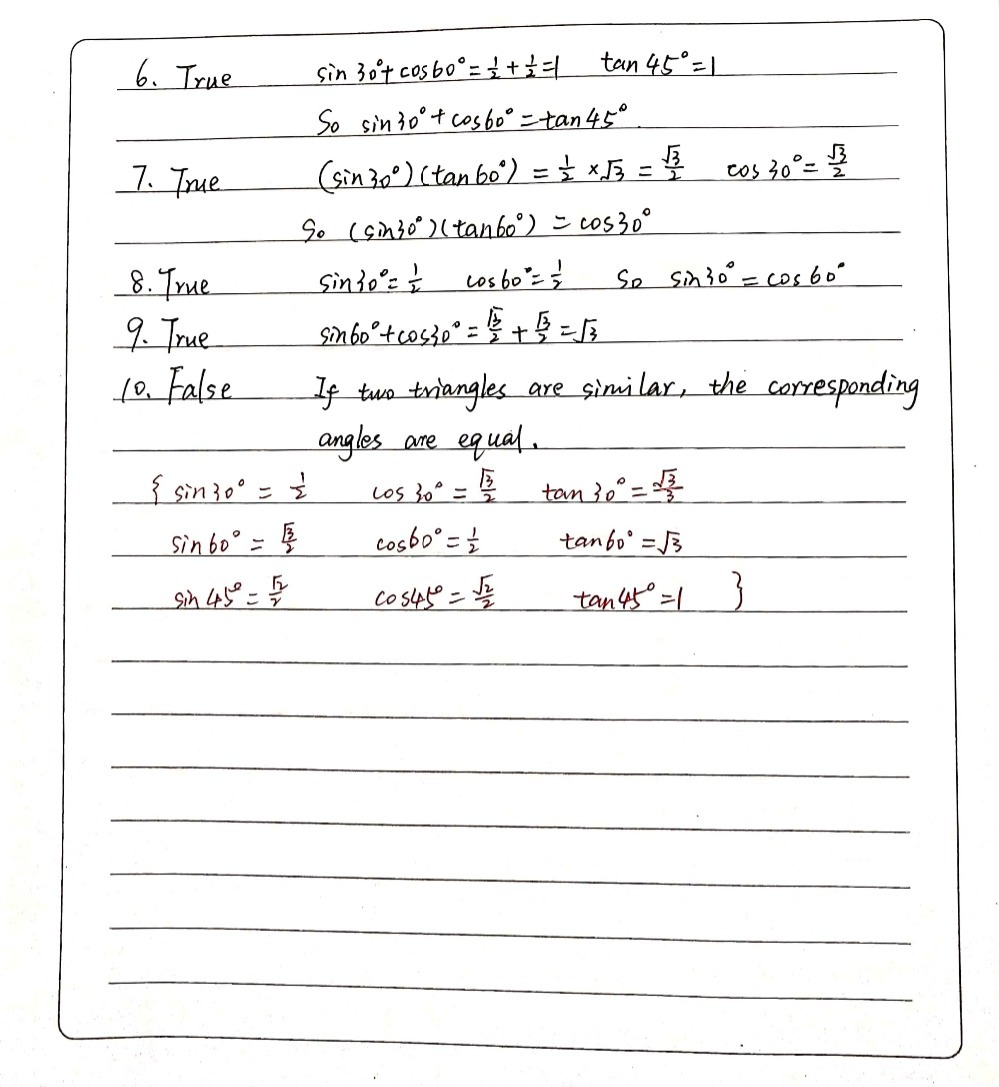 6. True sin 30°+ cos60° = 1/2 + 1/2 = 1 tan 45° = 1
So sin30° + cos60° = tan45°.
7. True (sin30°)(tan60°) = 1/2 × √3 = √3/2 cos 30° = √3/2
So (sin30°)(tan60°) = cos30°
8. True sin30° = 1/2 cos60° = 1/2 So sin30° = cos60°
9. True sin60° + cos30° = √3/2 + √3/2 = √3
10. False If two triangles are similar, the corresponding
angles are equal.
{ sin30° = 1/2 cos 30° = √3/2 tan 30° = √3/3
sin60° = √3/2 cos60° = 1/2 tan60° = √3
sin 45° = √2/2 cos45° = √2/2 tan45° = 1 }